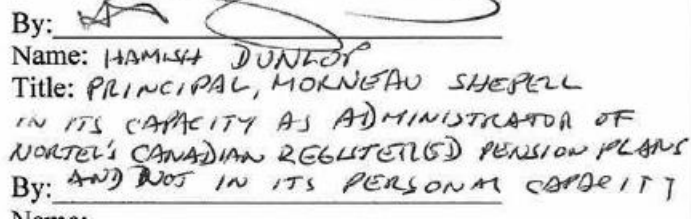 By:
Name: HAMISH DUNLOP
Title: PRINCIPAL, MORNEAU SHEPELL
IN ITS CAPACITY AS ADMINISTRATOR OF
NORTEL'S CANADIAN REGISTERED PENSION PLANS
By: AND NOT IN ITS PERSONAL CAPACITY
Name: